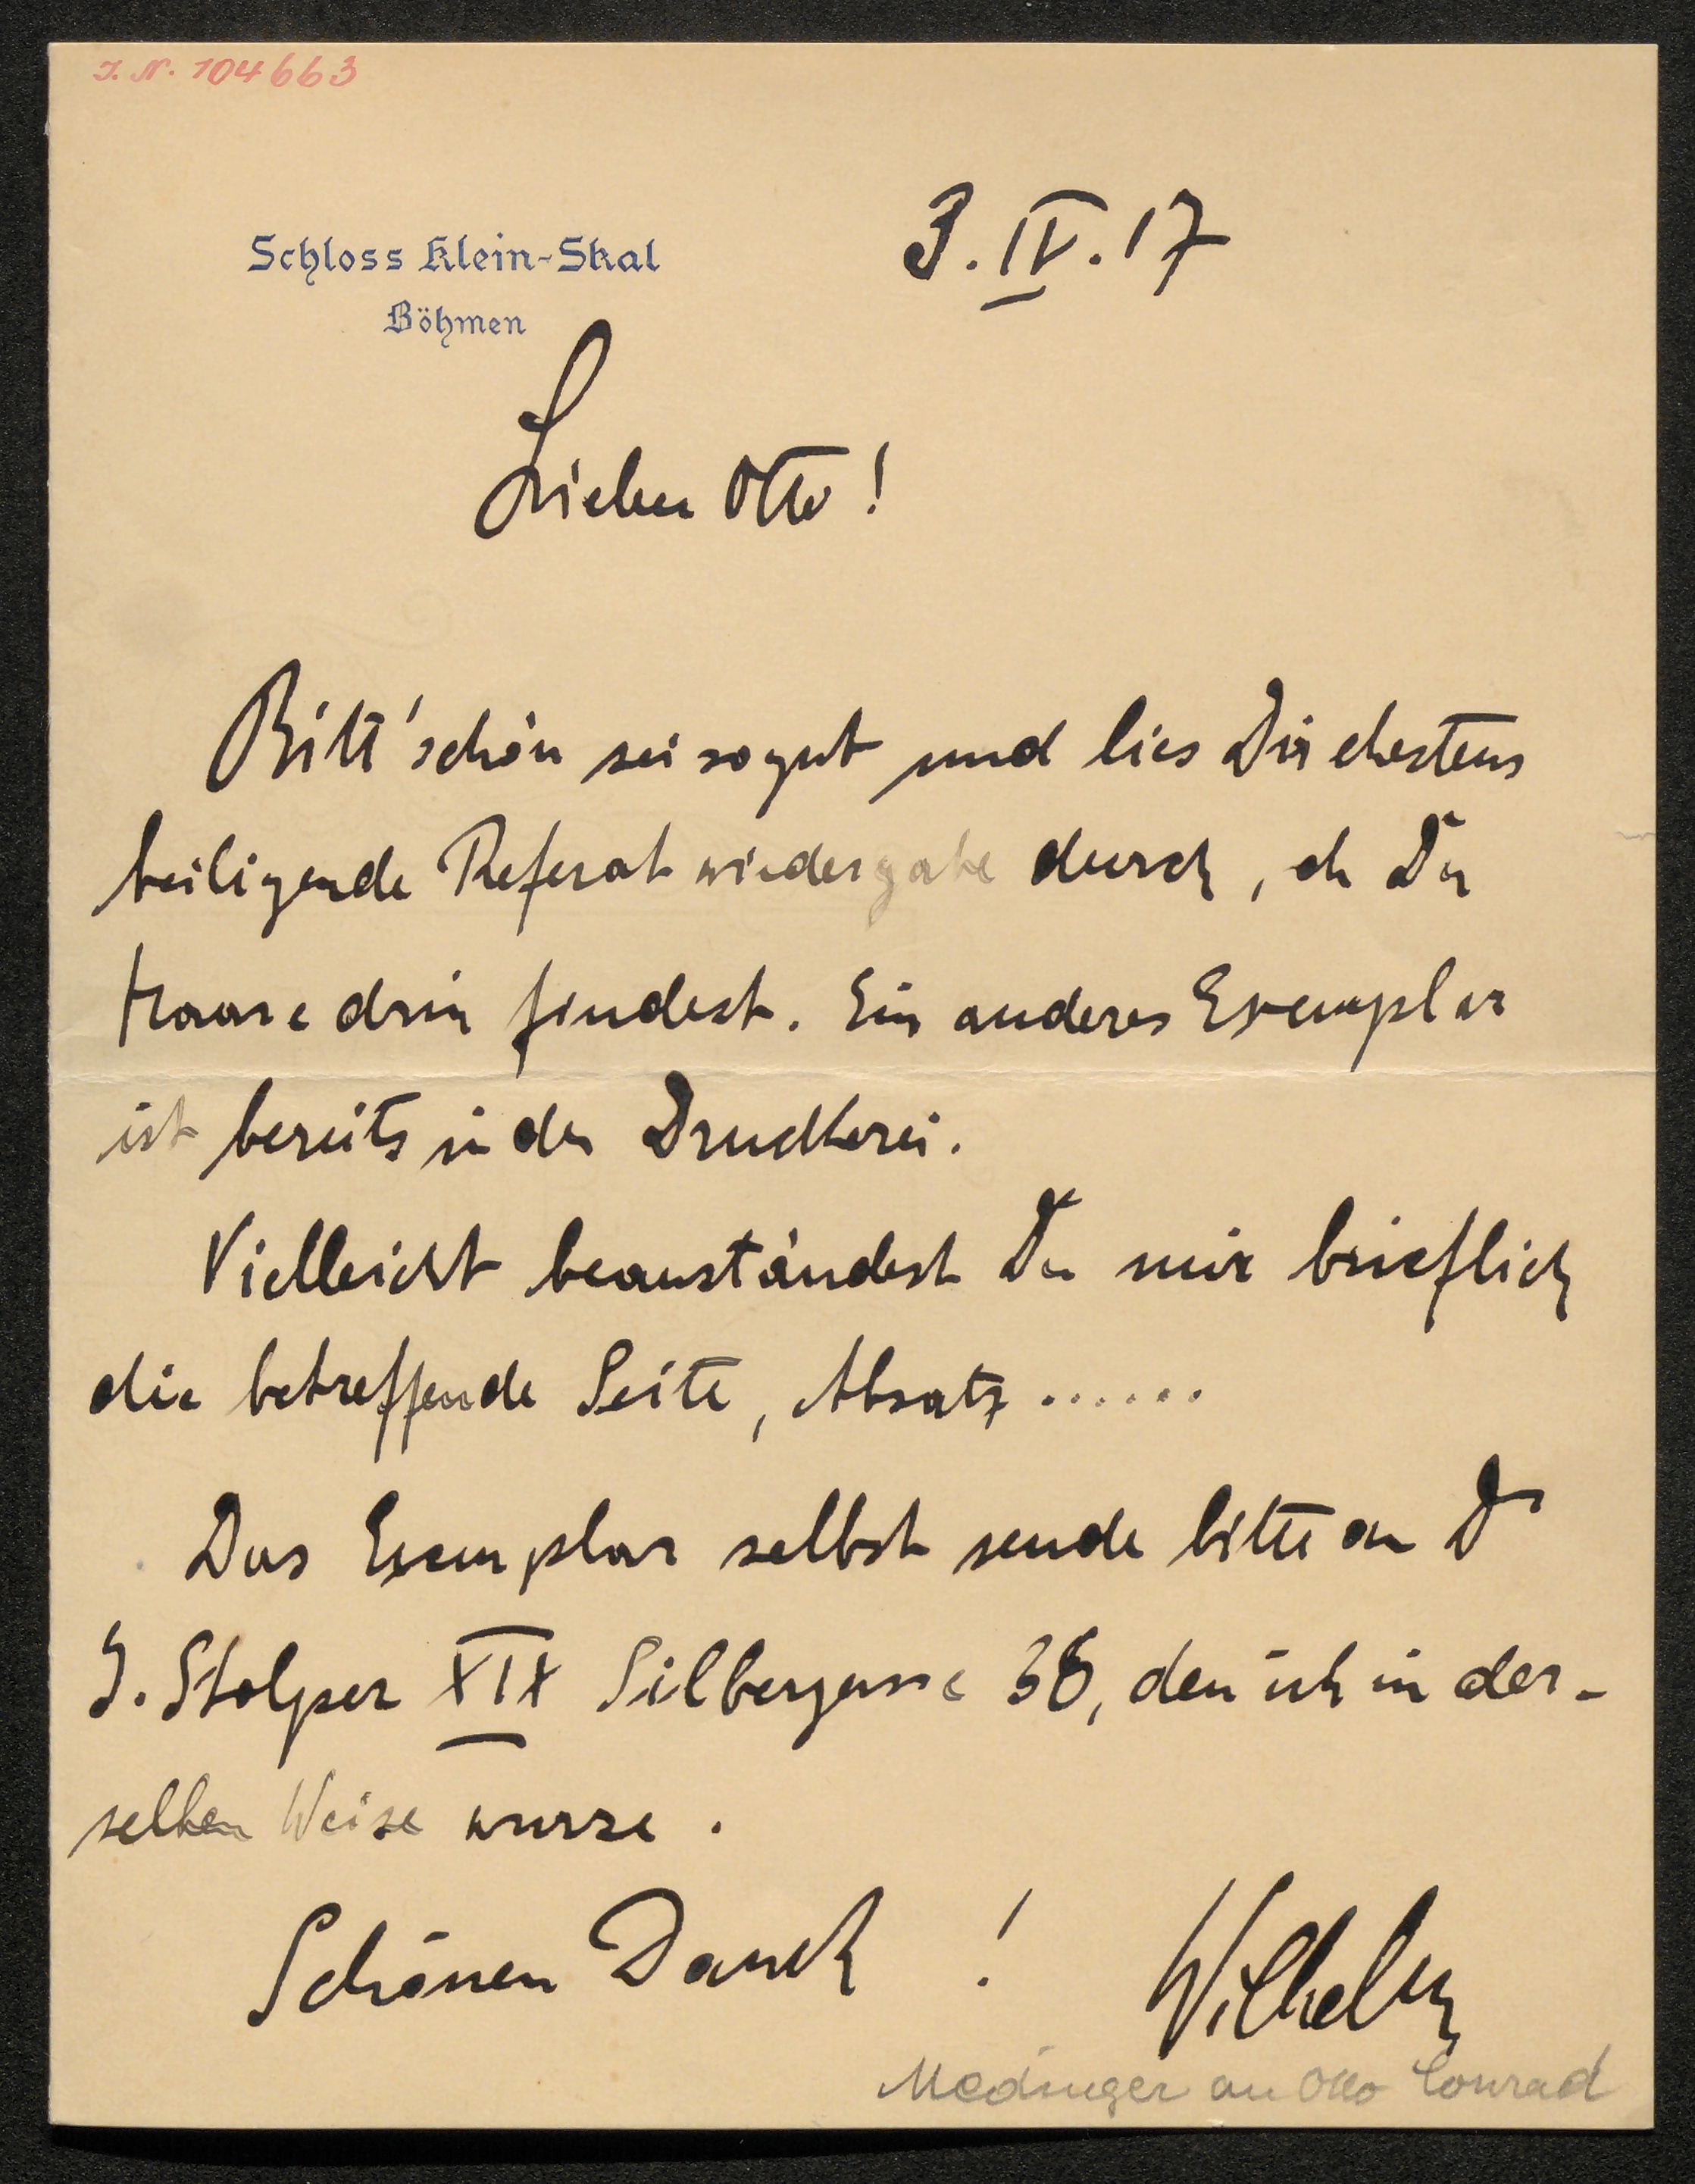 I. N. 104663
3.IV.17
Schloss Klein-Skal
Böhmen
Lieber Otto!
Bitt' schön sei so gut und lies Dir ehestens
beiligende Referat wiedergabe durch, ob Du
Haare drin findest. Ein anderes Exemplar
ist bereits in der Druckerei.
Vielleicht beanständest Du mir brieflich
die betreffende Seite, Absatz ......
Das Exemplar selbst sende bitte an Dr
G. Stolper XIX Silbergasse 38, den ich in der-
selben Weise wurze.
Schönen Dank ! Wilhelm
Medinger an Otto Conrad